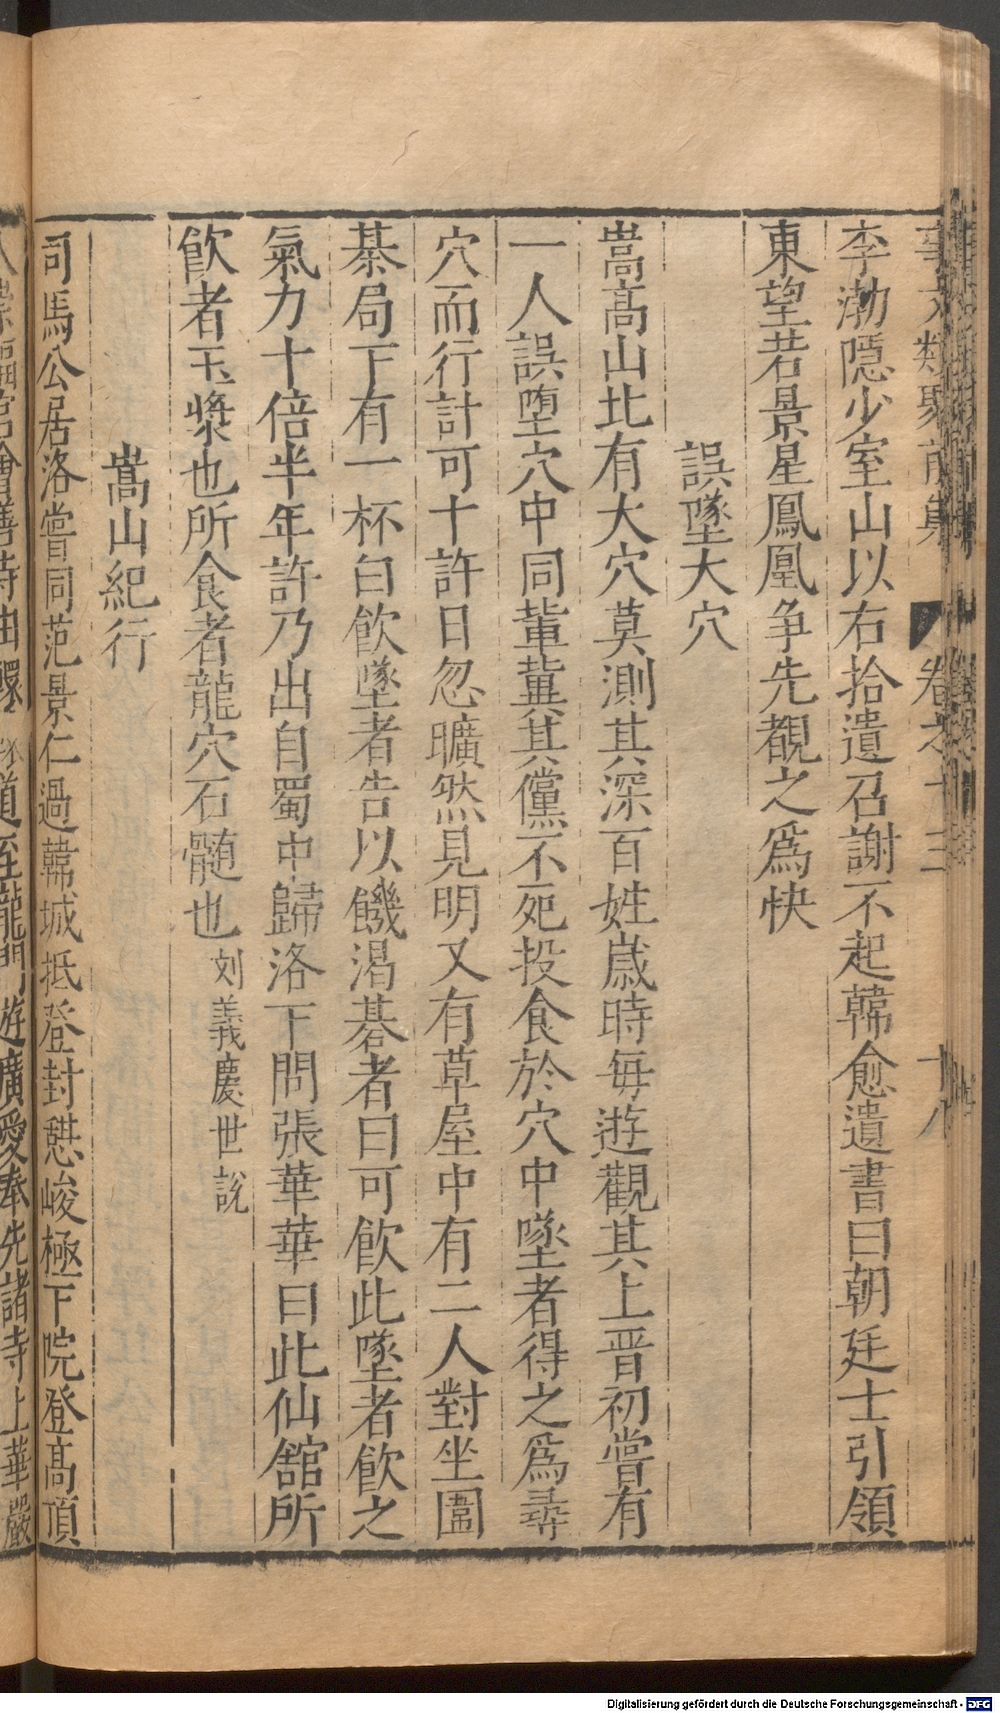 事文類聚前集 卷之十三 十八
李渤隱少室山以右拾遺召謝不起韓愈遺書曰朝廷士引領
東望若景星鳳凰争先覩之爲快
誤墜大穴
嵩高山北有大穴莫測其深百姓歲時每遊觀其上晋初嘗有
一人誤墮穴中同輩冀其儻不死投食於穴中墜者得之爲尋
穴而行計可十許日忽曠然見明又有草屋中有二人對坐圍
棊局下有一杯白飲墜者告以饑渴碁者曰可飲此墜者飲之
氣力十倍半年許乃出自蜀中歸洛下問張華華曰此仙館所
飲者玉漿也所食者龍穴石髓也 刘義慶世說
嵩山紀行
司馬公居洛嘗同范景仁過韓城抵登封憇峻極下院登高頂
道至龍門遊廣愛奉先諸寺上華嚴
Digitalisierung gefördert durch die Deutsche Forschungsgemeinschaft - DFG